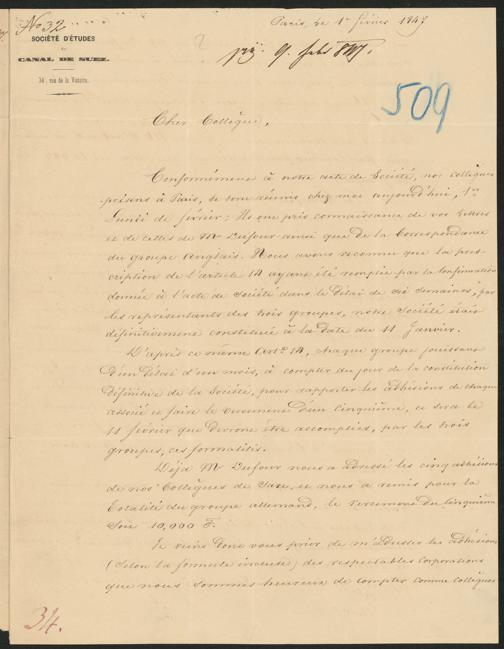 No 32
SOCIÉTÉ D'ÉTUDES
du
CANAL DE SUEZ.
34, rue de la Victoire.
Paris, le 1er février 1847
9. febr 847.
509
Cher Collègue,
Conformément à notre acte de Société, nos collègues
présens à Paris, se sont réunis chez moi aujourd'hui, 1er
Lundi de février; Ils ont pris connaissance de vos lettres
et de celles de Mr Dufour ainsi que de la Correspondance
du groupe anglais. Nous avons reconnu que la pres-
cription de l'article 14 ayant été remplie par la confirmation
donnée à l'acte de Société dans le délai de six semaines, par
les représentants des trois groupes, notre Société était
définitivement constituée à la date du 11 Janvier.
D'après ce même Art. 14, chaque groupe jouissant
d'un délai d'un mois, à compter du jour de la constitution
définitive de la Société, pour rapporter les adhésions de chaque
associé et faire le versement d'un cinquième, ce sera le
11 février que devront être accomplies, par les trois
groupes, ces formalités.
Déjà Mr Dufour nous a adressé les cinq adhésions
de nos Collègues de Saxe, et nous a remis pour la
totalité du groupe allemand, le versement du cinquième
Soit 10,000 F.
Je viens donc vous prier de m'adresser les adhésions
(selon la formule incluse) des respectables corporations
que nous sommes heureux de compter comme collègues
34.